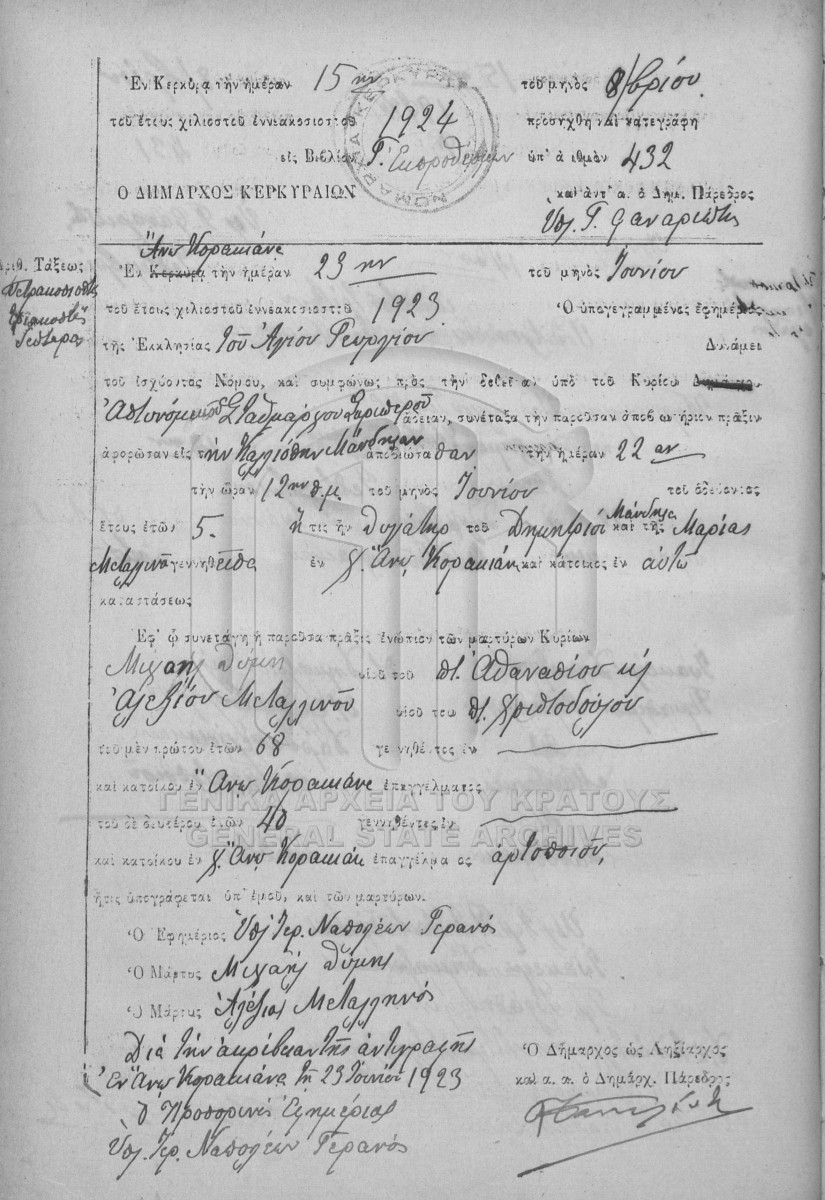 Ἐν Κερκύρᾳ τὴν ἡμέραν 15ην τοῦ μηνὸς 8/βρίου
τοῦ ἔτους χιλιοστοῦ ἐννεακοσιοστοῦ 1924 προσήχθη καὶ κατεγράφη
εἰς Βιβλίον Γ' Ἐκπροθέσμων ὑπ' ἀριθμὸν 432
Ο ΔΗΜΑΡΧΟΣ ΚΕΡΚΥΡΑΙΩΝ καὶ ἀντ' α. ὁ Δημ. Πάρεδρος
Ὑπ. Γ. Φαναριώτης
Ἄνω Κορακιάνα
Ἀριθ. Τάξεως
Τετρακοσιοστὴ
τριακοστὴ
δευτέρα
Ἐν Κερκύρᾳ τὴν ἡμέραν 23ην τοῦ μηνὸς Ἰουνίου
τοῦ ἔτους χιλιοστοῦ ἐννεακοσιοστοῦ 1923 Ὁ ὑπογεγραμμένος ἐφημέριος
τῆς Ἐκκλησίας τοῦ Ἁγίου Γεωργίου Δυνάμει
τοῦ ἰσχύοντος Νόμου, καὶ συμφώνως πρὸς τὴν δοθεῖσαν ὑπὸ τοῦ Κυρίου Δημάρχου
Ἀστυνομικοῦ Σταθμάρχου Σκριπεροῦ ἄδειαν, συνέταξα τὴν παροῦσαν ἀποβιωτήριον πρᾶξιν
ἀφορῶσαν εἰς τὴν Καλλιόπην Μάνδηλαν ἀποβιώσασαν τὴν ἡμέραν 22αν
τὴν ὥραν 12ην π.μ. τοῦ μηνὸς Ἰουνίου τοῦ ὁδεύοντος
ἔτους ἐτῶν 5. ἥ τις ἦν θυγάτηρ τοῦ Δημητρίου Μάνδηλα καὶ τῆς Μαρίας
Μεταλλινοῦ γεννηθεῖσα ἐν χ. Ἄνω Κορακιάνα καὶ κάτοικος ἐν αὐτῷ
καταστάσεως
Ἐφ' ᾧ συνετάγη ἡ παροῦσα πρᾶξις ἐνώπιον τῶν μαρτύρων Κυρίων
Μιχαὴλ Θύμη υἱοῦ τοῦ π. Ἀθανασίου κ
Ἀλεξίου Μεταλλινοῦ υἱοῦ του π. Χριστοδούλου
τοῦ μὲν πρώτου ἐτῶν 68 γεννηθέντος ἐν
καὶ κατοίκου ἐν Ἄνω Κορακιάνα ἐπαγγέλματος
τοῦ δὲ δευτέρου ἐτῶν 40 γεννηθέντος ἐν
καὶ κατοίκου ἐν χ. Ἄνω Κορακιάνα ἐπαγγέλματος ἀρτοποιοῦ,
ἥτις ὑπογράφεται ὑπ' ἐμοῦ, καὶ τῶν μαρτύρων.
Ὁ Ἐφημέριος Ὑπ. Ἱερ. Ναπολέων Γερανός
Ὁ Μάρτυς Μιχαὴλ Θύμης
Ὁ Μάρτυς Ἀλέξιος Μεταλληνός
Διὰ τὴν ἀκρίβειαν τῆς ἀντιγραφῆς
Ὁ Δήμαρχος ὡς Ληξίαρχος
Ἐν Ἄνω Κορακιάνα τῇ 23 Ἰουνίου 1923
καὶ α. α. ὁ Δημάρχ. Πάρεδρος
Ὁ Προσωρινὸς Ἐφημέριος
Ὑπ. Ἱερ. Ναπολέων Γερανός
ΓΕΝΙΚΑ ΑΡΧΕΙΑ ΤΟΥ ΚΡΑΤΟΥΣ
GENERAL STATE ARCHIVES